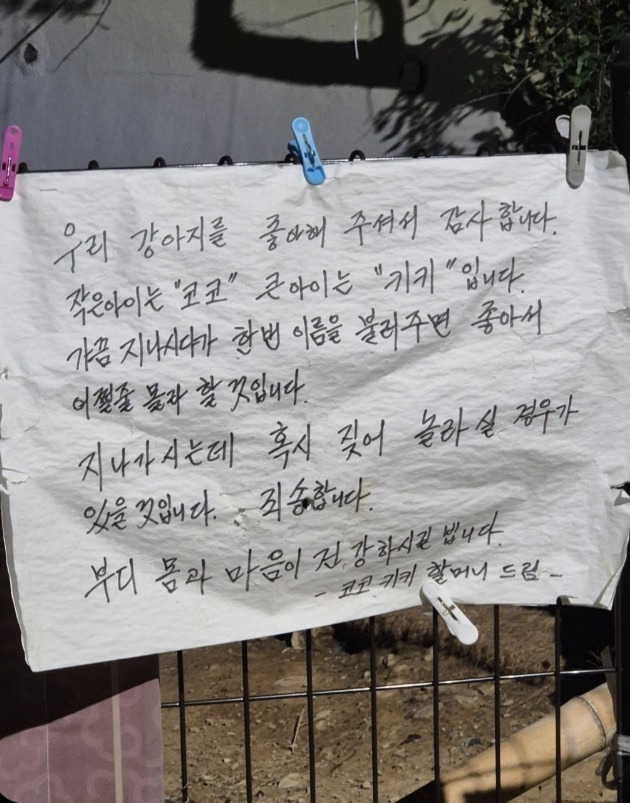 우리 강아지를 좋아해 주셔서 감사합니다.
작은아이는 "코코" 큰아이는 "키키"입니다.
가끔 지나시다가 한번 이름을 불러주면 좋아서
어쩔줄 몰라 할 것입니다.
지나가시는데 혹시 짖어 놀라실 경우가
있을 것입니다. 죄송합니다.
부디 몸과 마음이 건강하시길 빕니다.
- 코코 키키 할머니 드림 -